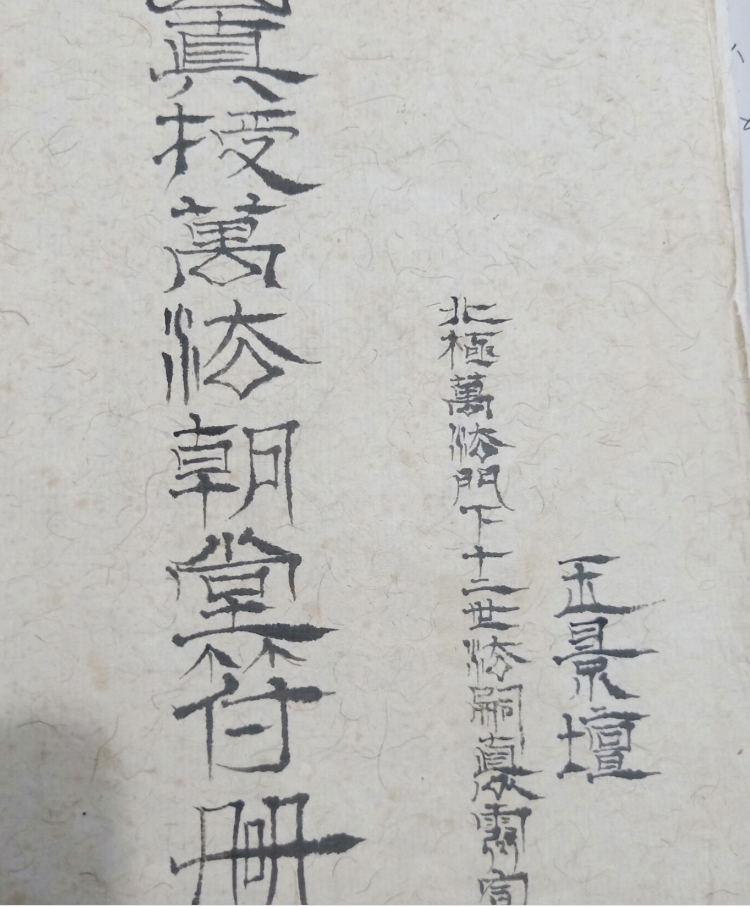 玉景壇
北極萬法門下十二世法嗣真
真授萬法朝堂符冊